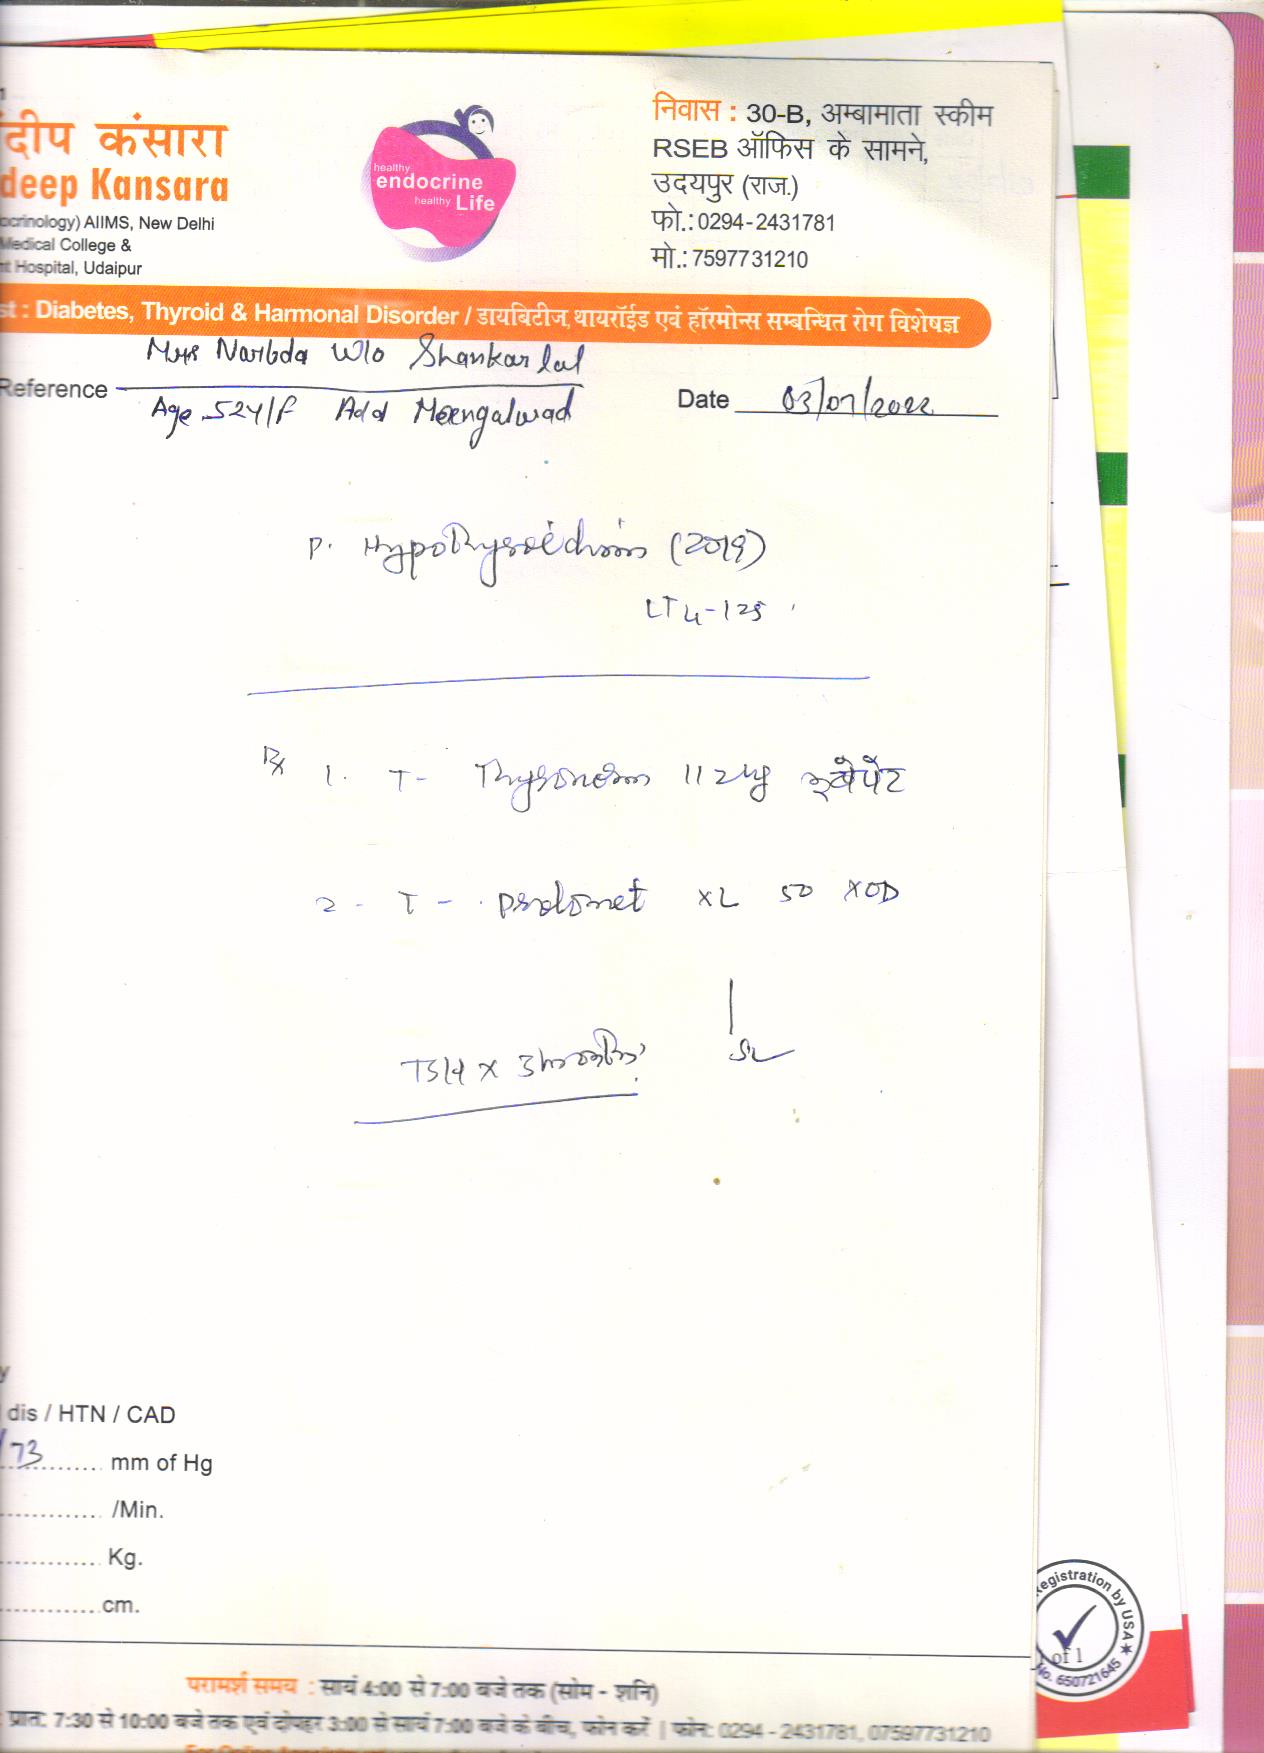 दीप कंसारा
deep Kansara
ocrinology) AIIMS, New Delhi
Medical College &
nt Hospital, Udaipur
healthy
endocrine
healthy Life
निवास : 30-B, अम्बामाता स्कीम
RSEB ऑफिस के सामने,
उदयपुर (राज.)
फो.: 0294-2431781
मो.: 7597731210
st : Diabetes, Thyroid & Harmonal Disorder / डायबिटीज, थायरॉईड एवं हॉरमोन्स सम्बन्धित रोग विशेषज्ञ
Mrs Narbda W/o Shankar lal
Reference
Age 52y/F Add Meengalwad
Date 03/07/2022
P. Hypothyroidism (2019)
LT4-125
Rx 1. T- Thyronorm 112 μg
2- T- Prolomet XL 50 XOD
TSH x 3 months
dis / HTN / CAD
/73 mm of Hg
/Min.
Kg.
cm.
Registration by USA
of 1
No. 650721645
परामर्श समय : सायं 4:00 से 7:00 बजे तक (सोम - शनि)
प्रात: 7:30 से 10:00 बजे तक एवं दोपहर 3:00 से सायं 7:00 बजे के बीच, फोन करें | फोन: 0294 - 2431781, 07597731210